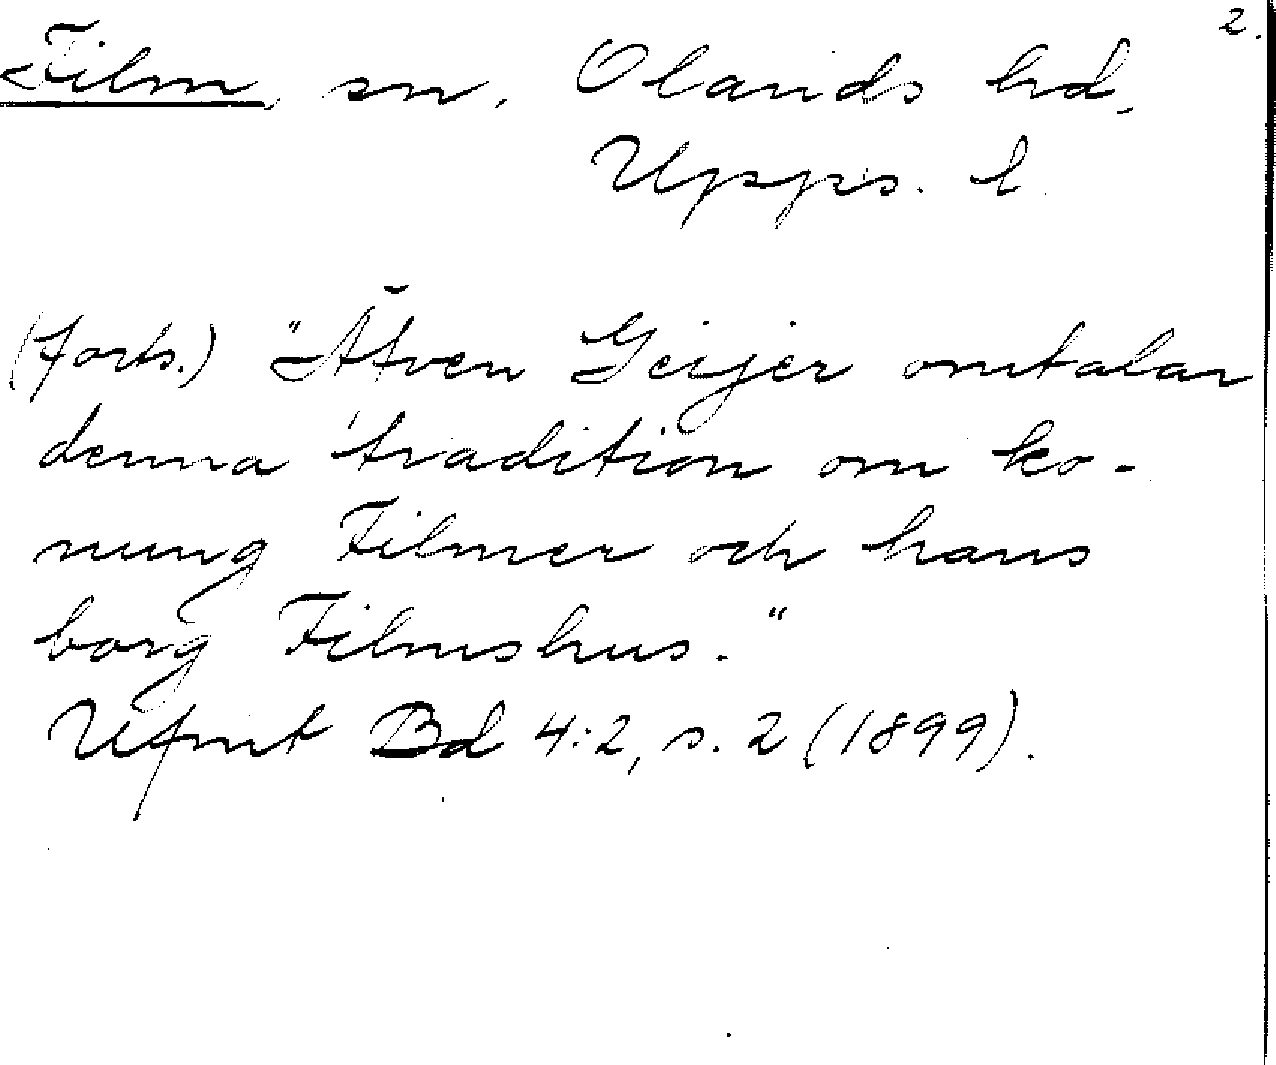 2.
Film, sn. Olands hd,
Upps. l.
(forts.) "Äfven Geijer omtalar
denna tradition om ko-
nung Filmer och hans
borg Filmshus."
Ufmt Bd 4:2, s. 2 (1899).